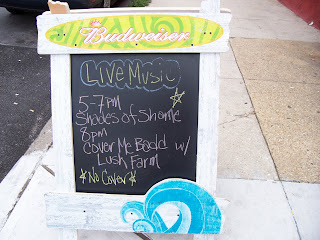 Budweiser
LIVE MUSIC
5-7pm
Shades of Shame
8pm
Cover Me Badd w/
Lush Farm
No Cover